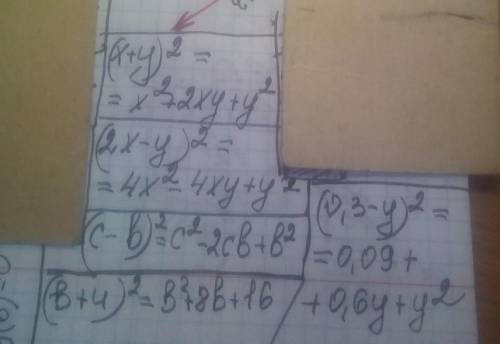 (x+y)² =
= x²+2xy+y²
(2x-y)² =
= 4x²-4xy+y²
(c-b)²=c²-2cb+b²
(b+4)²=b²+8b+16
(0,3-y)² =
=0,09+
+0,6y+y²